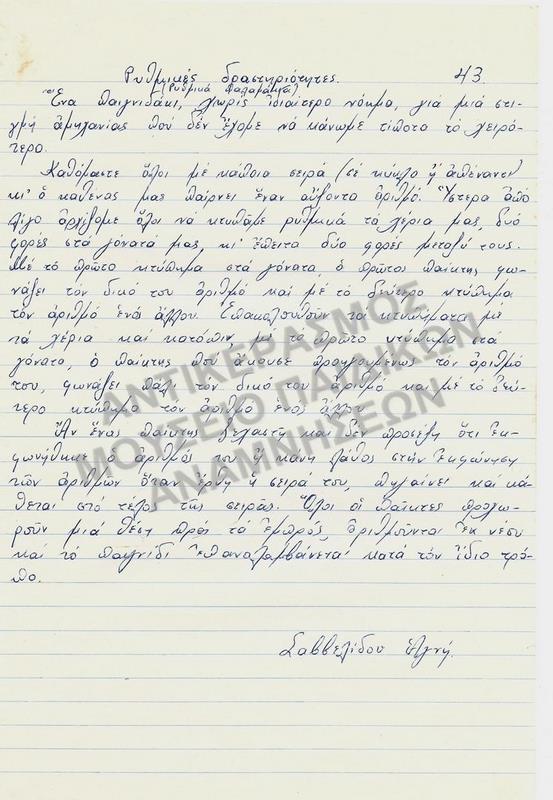 Ρυθμικές δραστηριότητες. 43.
(Ρυθμικά Παλαμάκια)
Ἕνα παιγνιδάκι, χωρίς ἰδιαίτερο νόημα, γιά μιά στι-
γμή ἀμηχανίας πού δέν ἔχομε νά κάνωμε τίποτα τό χειρό-
τερο.
Καθόμαστε ὅλοι μέ κάποια σειρά (σέ κύκλο ἤ ἀπέναντι)
κι' ὁ καθένας μας παίρνει ἕναν αὔξοντα ἀριθμό. Ὕστερα ἀπό
λίγο ἀρχίζομε ὅλοι νά κτυπᾶμε ρυθμικά τά χέρια μας, δύο
φορές στά γόνατά μας, κι' ἔπειτα δύο φορές μεταξύ τους.
Μέ τό πρῶτο κτύπημα στά γόνατα, ὁ πρῶτος παίκτης φω-
νάζει τόν δικό του ἀριθμό καί μέ τό δεύτερο κτύπημα
τόν ἀριθμό ἑνός ἄλλου. Ἐπακολουθοῦν τά κτυπήματα μέ
τά χέρια καί κατόπιν, μέ τό πρῶτο κτύπημα στά
γόνατα, ὁ παίκτης πού ἄκουσε προηγουμένως τόν ἀριθμό
του, φωνάζει πάλι τόν δικό του ἀριθμό καί μέ τό δεύ-
τερο κτύπημα τόν ἀριθμό ἑνός ἄλλου.
Ἄν ἕνας παίκτης ξεχαστῆ καί δέν προσέξη ὅτι ἐκ-
φωνήθηκε ὁ ἀριθμός του ἤ κάνη λάθος στήν ἐκφώνηση
τῶν ἀριθμῶν ὅταν ἔρθη ἡ σειρά του, πηγαίνει καί κά-
θεται στό τέλος τῆς σειρᾶς. Ὅλοι οἱ παῖκτες προχω-
ροῦν μιά θέση πρός τά ἐμπρός, ἀριθμοῦνται ἐκ νέου
καί τό παιγνίδι ἐπαναλαμβάνεται κατά τόν ἴδιο τρό-
πο.
Σαββελίδου Ἁγνή.
ΑΝΤΙΚΕΡΑΣΜΟΣ
ΜΟΥΣΕΙΟ ΠΑΙΔΙΚΩΝ
ΑΝΑΜΝΗΣΕΩΝ